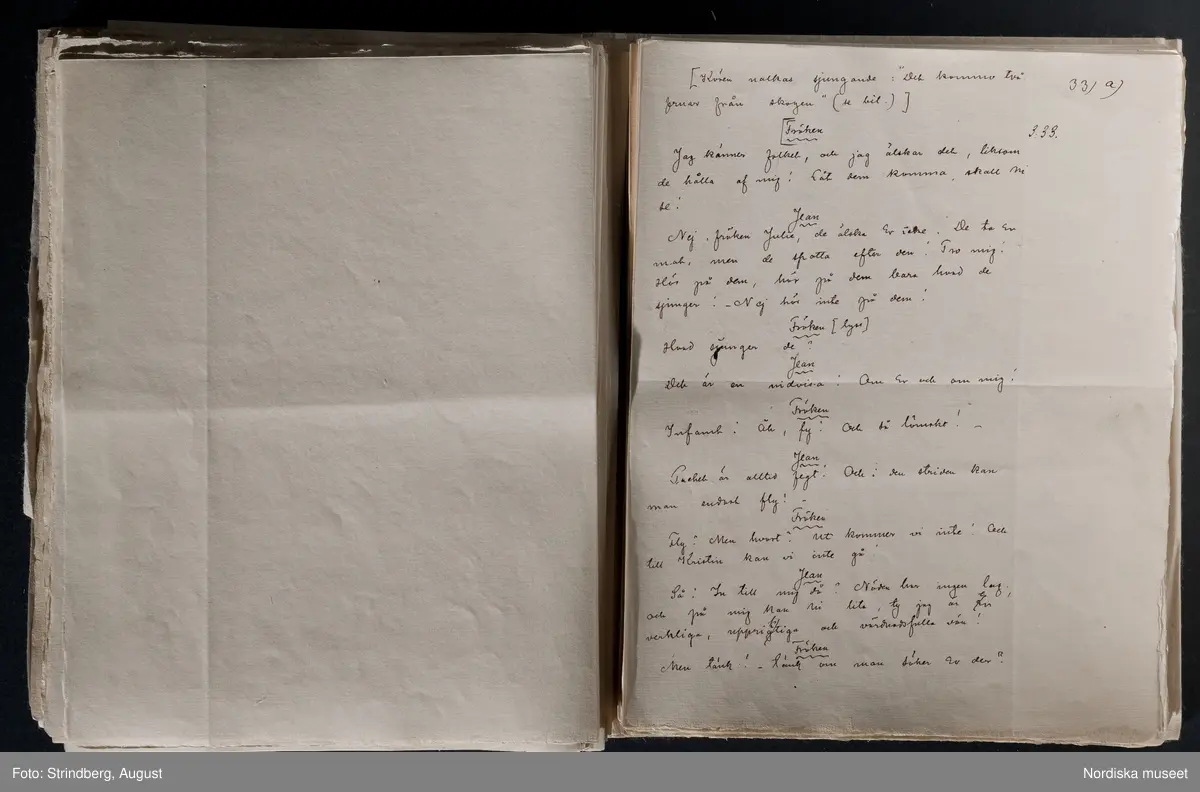 [Kören nalkas sjungande: "Det kommo två
fruar från skogen" (se bil.)]
33) a)
[Fröken
S.33.
Jag känner folket, och jag älskar det, liksom
de hålla af mig! Låt dem komma, skall Ni
se!
Jean
Nej, fröken Julie, de älska Er icke! De ta Er
mat, men de spotta efter den! Tro mig!
Hör på dem, hör på dem bara hvad de
sjunger! – Nej hör inte på dem!
Fröken [lyss]
Hvad sjunger de?
Jean
Det är en nidvisa! Om Er och om mig!
Fröken
Infamt! Åh, fy! Och så lömskt! –
Jean
Packet är alltid fegt! Och i den striden kan
man endast fly! –
Fröken
Fly? Men hvart? Ut kommer vi inte! Och
till Kristin kan vi inte gå!
Jean
Så! In till mig då? Nöden har ingen lag;
och på mig kan Ni lita, ty jag är Er
verkliga, uppriktiga och vördnadsfulla vän!
Fröken
Men tänk! – tänk om man söker Er der?
Foto: Strindberg, August
Nordiska museet